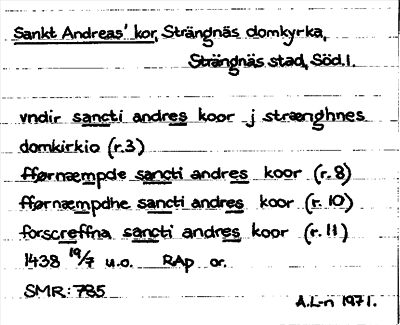 Sankt Andreas' kor, Strängnäs domkyrka,
Strängnäs stad, Söd.l.
vndir sancti andres koor j strænghnes
domkirkio (r.3)
fførnæmpde sancti andres koor (r.8)
fførnæmpdhe sancti andres koor (r.10)
forscreffna sancti andres koor (r.11)
1438 19/7 u.o. RAp or.
SMR:785
A.L-n 1971.